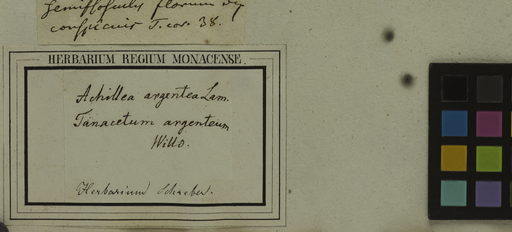 semiflosculis florum
conspicuis T. cor. 38.
HERBARIUM REGIUM MONACENSE.
Achillea argentea Lam.
Tanacetum argenteum
Willd.
Herbarium Schreber.